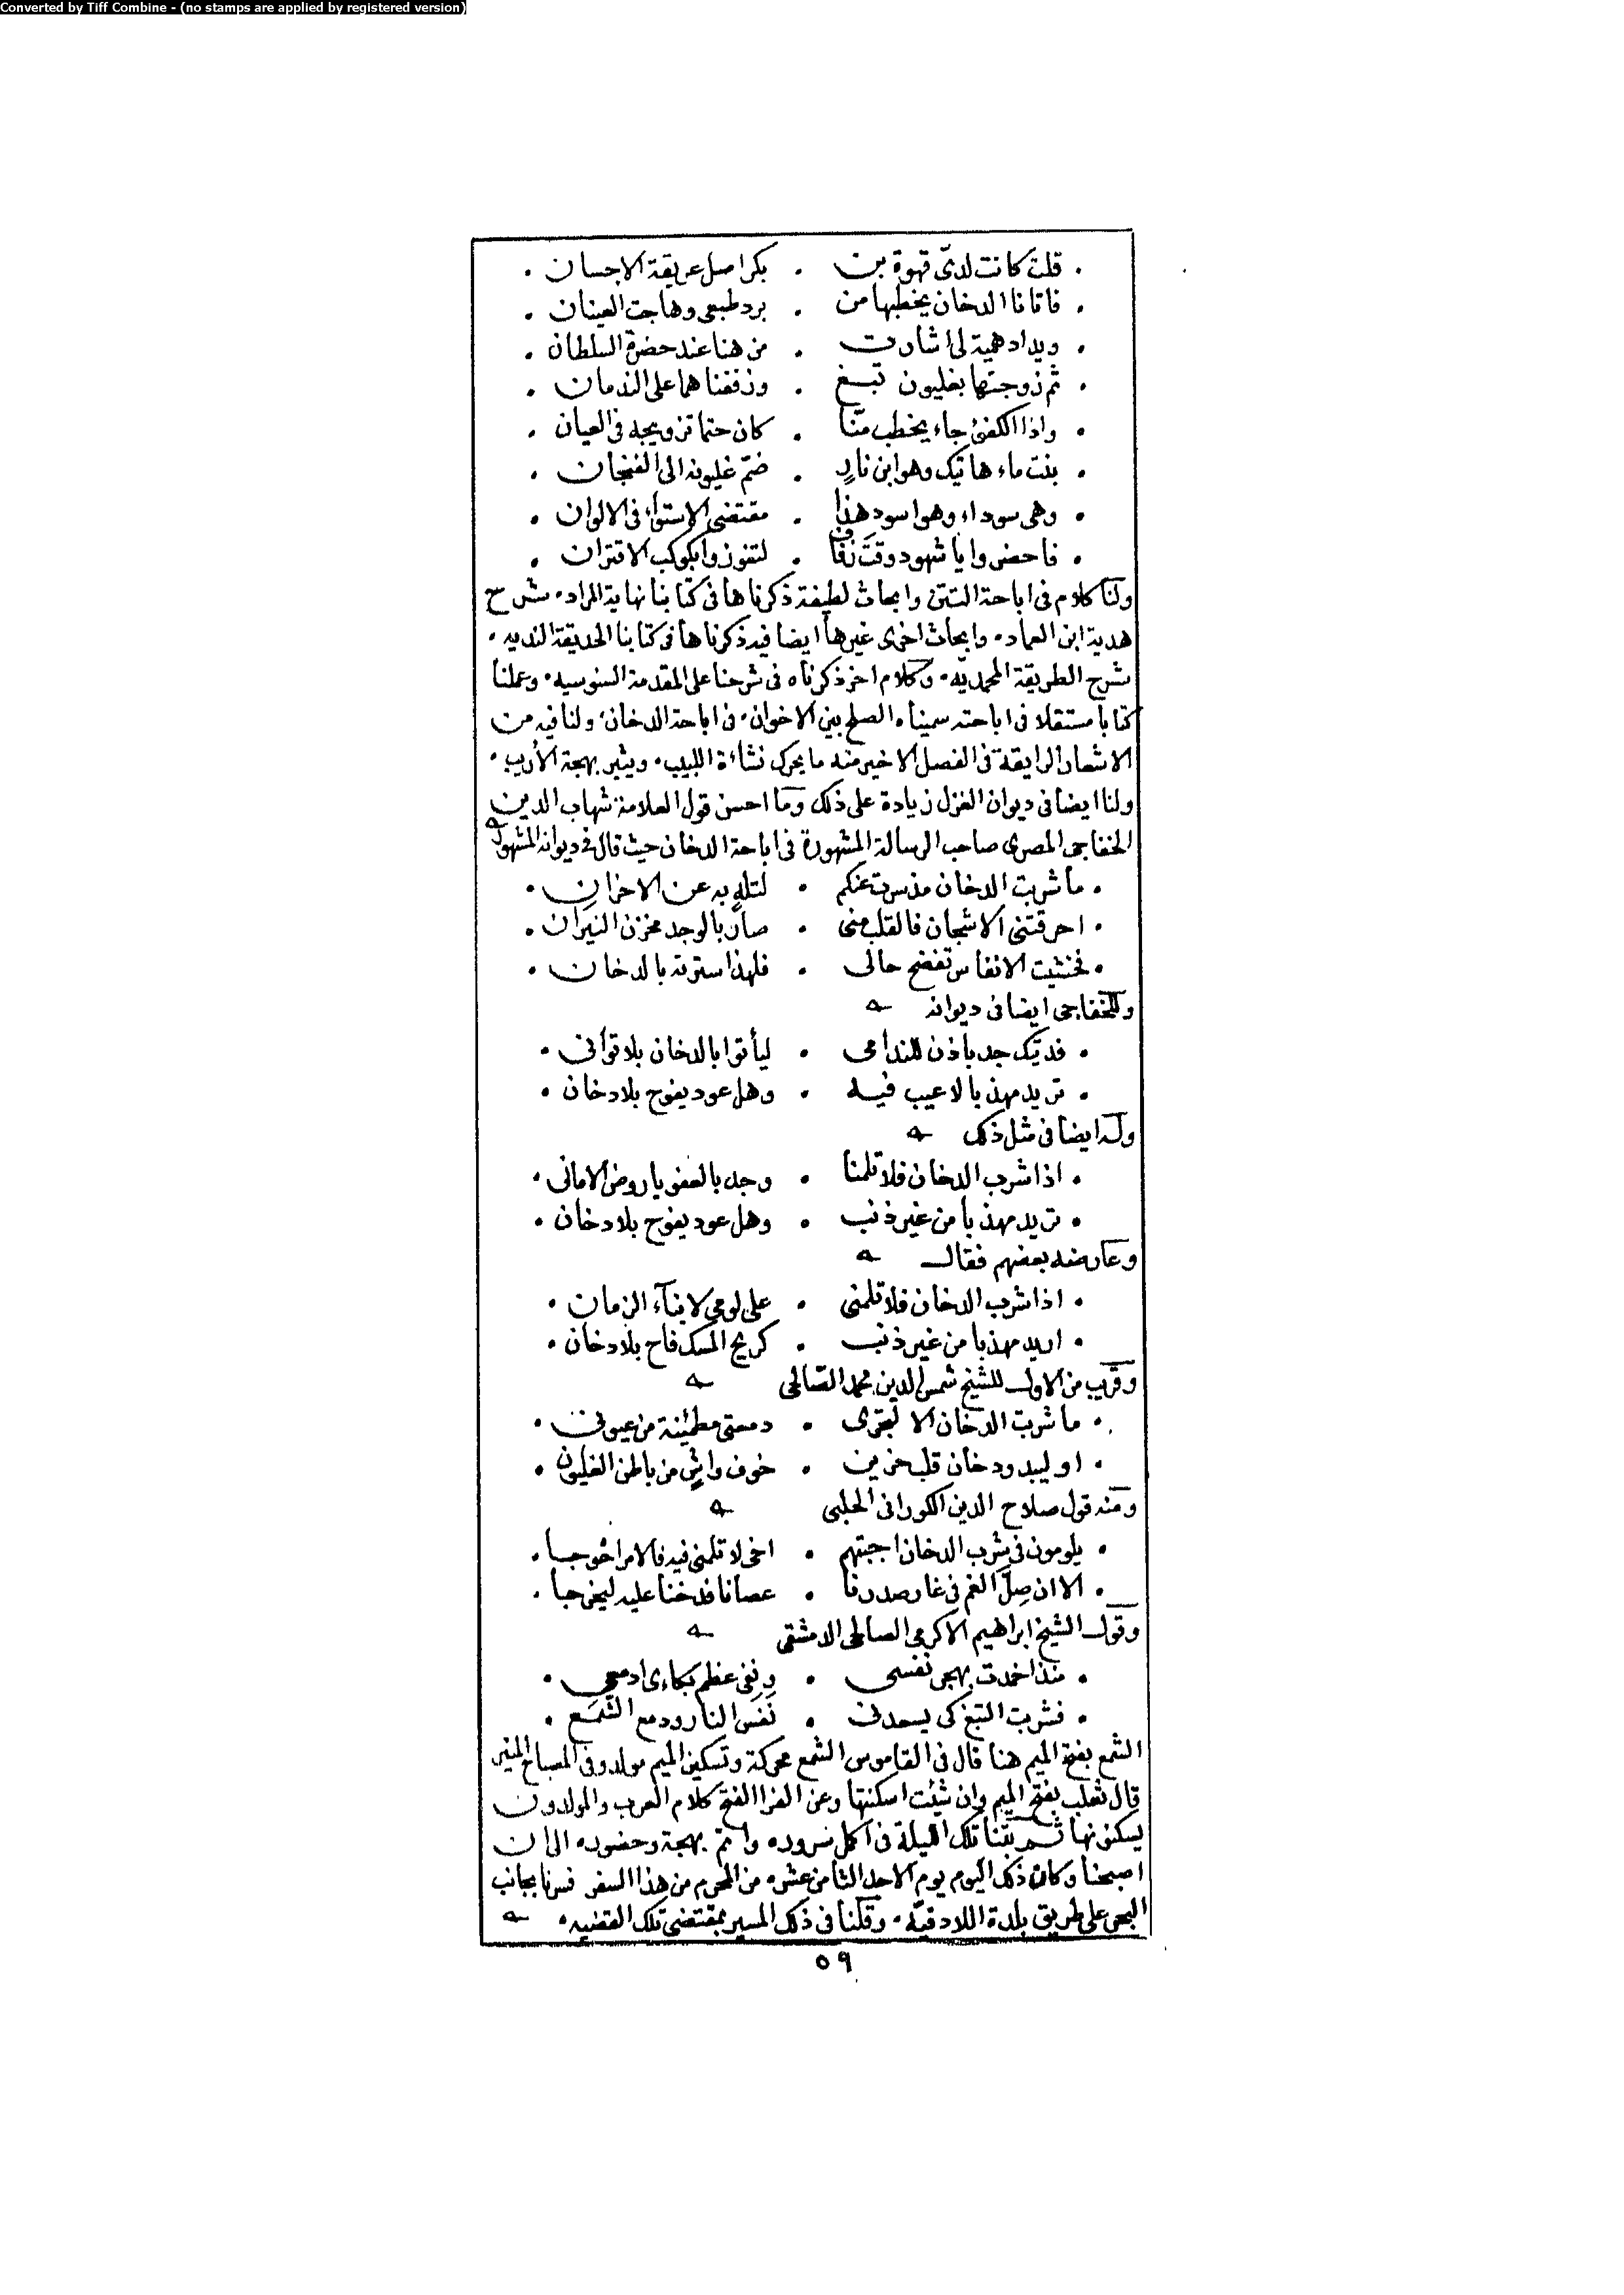 Converted by Tiff Combine - (no stamps are applied by registered version)
• قلت كانت لدىّ قهوة بن • بكر اصل عريقة الاحسان •
• فاتانا الدخان يخطبها من • برد طبعى وهاجت العينان •
• ويد ادهمية لى اشارت • من هنا عند حضرة السلطان •
• ثم زوجتها بغليون تبغ • وزففناهما على الندمان •
• واذا الكفئ جاء يخطب منّا • كان حتما تزويجه فى العيان •
• بنت ماء هاتيك وهو ابن نارٍ • ضمّ غليونه الى الفنجان •
• وهى سوداء وهو اسود هذا • مقتضى الاستواء فى الالوان •
• فاحضروا يا شهود وقت زفاف • لتفوزوا بكوكب الاقتران •
ولنا كلام فى اباحة التتن وابحاث لطيفة ذكرناها فى كتابنا نهاية المراد • شرح
هدية ابن العماد • وابحاث اخرى غيرها ايضا فيه ذكرناها فى كتابنا الحديقة النديه •
شرح الطريقة المحمديّه • وكلام اخر ذكرناه فى شرحنا على المقدمة السنوسيه • وعملنا
كتابا مستقلا فى اباحته سميناه الصلح بين الاخوان • فى اباحة الدخان • ولنا فيه من
الاشعار الرايقة فى الفصل الاخير منه ما يحرك نشاءة اللبيب • ويثير بهجة الأريب •
ولنا ايضا فى ديوان الغزل زيادة على ذلك وما احسن قول العلامة شهاب الدين
الخفاجى المصرى صاحب الرسالة المشهورة فى اباحة الدخان حيث قال فى ديوانه المشهور
• ما شربت الدخان مذ سرت عنكم • لتلهٍ به عن الاحزان •
• احرقتنى الاشجان فالقلب منى • صار بالوجد مخزن النيران •
• فخشيت الانفاس تفضح حالى • فلهذا سترته بالدخان •
وللخفاجى ايضا فى ديوانه
• فديتك جد باذن للندامى • ليأتوا بالدخان بلا توانى •
• تريد مهذبا لا عيب فيه • وهل عود يفوح بلا دخان •
وله ايضا فى مثل ذلك
• اذا شرب الدخان فلا تلمنا • وجد بالعفو يا روض الامانى •
• تريد مهذبا من غير ذنب • وهل عود يفوح بلا دخان •
وعارضه بعضهم فقال
• اذا شرب الدخان فلا تلمنى • على لومى لابنآء الزمان •
• اريد مهذبا من غير ذنب • كريح المسك فاح بلا دخان •
وقريب من الاول للشيخ شمس الدين محمد الصّالحى
• ما شربت الدخان الا لتجرى • دمعتى مطمئنة من عيونى •
• او ليبدو دخان قلب حزين • خوف واشٍ من باطن الغليون •
ومنه قول صلاح الدين الكورانى الحلبى
• يلومون فى شرب الدخان اجبتهم • اخى لا تلمنى فيه فالامر احوجا •
• الا ان صِلّ الغم فى غار صدرنا • عصانا فدخنا عليه ليخرجا •
وقول الشيخ ابراهيم الاكرمى الصالحى الدمشقى
• منذ اخمدت بهجى نفسى • ونفى عظم بكاءى ادمعى •
• فشربت التبغ كى يسعدنى • نَفَس النار ودمع الشّمَع •
الشمع بفتح الميم هنا قال فى القاموس الشمع محركة وتسكين الميم مولد وفى المصباح المنير
قال ثعلب بفتح الميم وان شئت اسكنتها وعن الفرا الفتح كلام العرب والمولدون
يسكنونها ثم بتنا تلك الليلة فى اكمل سرور • واتم بهجة وحضور • الى ان
اصبحنا وكان ذلك اليوم يوم الاحد الثامن عشر • من المحرم من هذا السفر فسرنا بجانب
البحر على طريق بلدة اللادقيّه • وقلنا فى ذلك المسير بمقتضى تلك القضيه •
٥٩